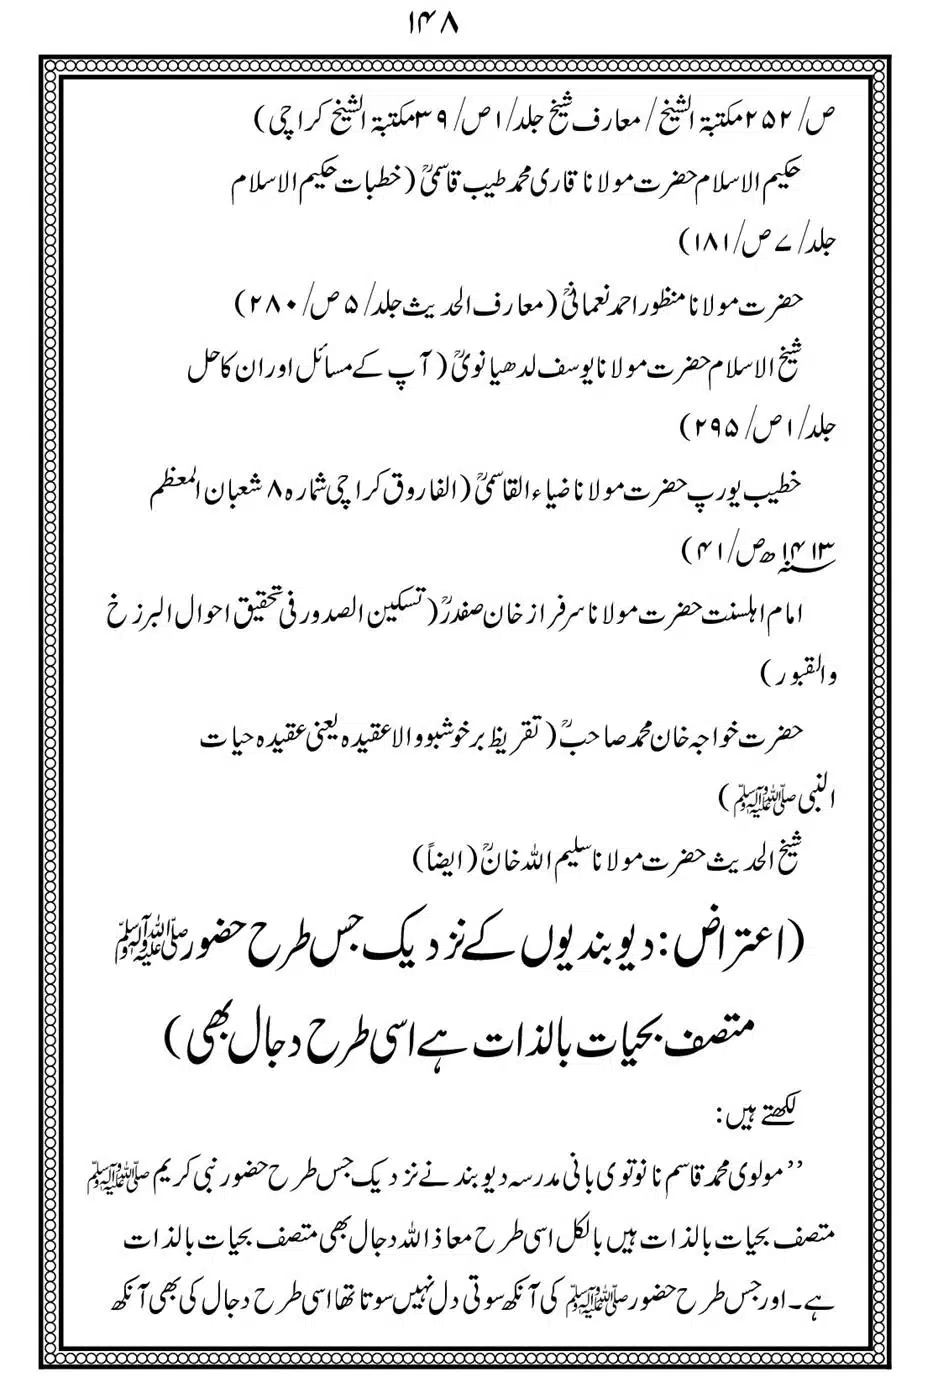 ۱۴۸
ص/۲۵۲مکتبۃ الشیخ/معارف شیخ جلد/۱ص/۳۹مکتبۃ الشیخ کراچی)
حکیم الاسلام حضرت مولانا قاری محمد طیب قاسمیؒ (خطبات حکیم الاسلام
جلد/۷ص/۱۸۱)
حضرت مولانا منظور احمد نعمانیؒ (معارف الحدیث جلد/۵ص/۲۸۰)
شیخ الاسلام حضرت مولانا یوسف لدھیانویؒ (آپ کے مسائل اور ان کا حل
جلد/۱ص/۲۹۵)
خطیب یورپ حضرت مولانا ضیاء القاسمیؒ (الفاروق کراچی شمارہ ۸ شعبان المعظم
۱۴۱۳؁ھ ص/۴۱)
امام اہلسنت حضرت مولانا سرفراز خان صفدرؒ (تسکین الصدور فی تحقیق احوال البرزخ
والقبور)
حضرت خواجہ خان محمد صاحبؒ (تقریظ بر خوشبو والا عقیدہ یعنی عقیدہ حیات
النبی ﷺ)
شیخ الحدیث حضرت مولانا سلیم اللہ خانؒ (ایضاً)
(اعتراض: دیوبندیوں کے نزدیک جس طرح حضور ﷺ
متصف بحیات بالذات ہے اسی طرح دجال بھی)
لکھتے ہیں:
’’مولوی محمد قاسم نانوتوی بانی مدرسہ دیوبند نے نزدیک جس طرح حضور نبی کریم ﷺ
متصف بحیات بالذات ہیں بالکل اسی طرح معاذ اللہ دجال بھی متصف بحیات بالذات
ہے۔ اور جس طرح حضور ﷺ کی آنکھ سوتی دل نہیں سوتا تھا اسی طرح دجال کی بھی آنکھ